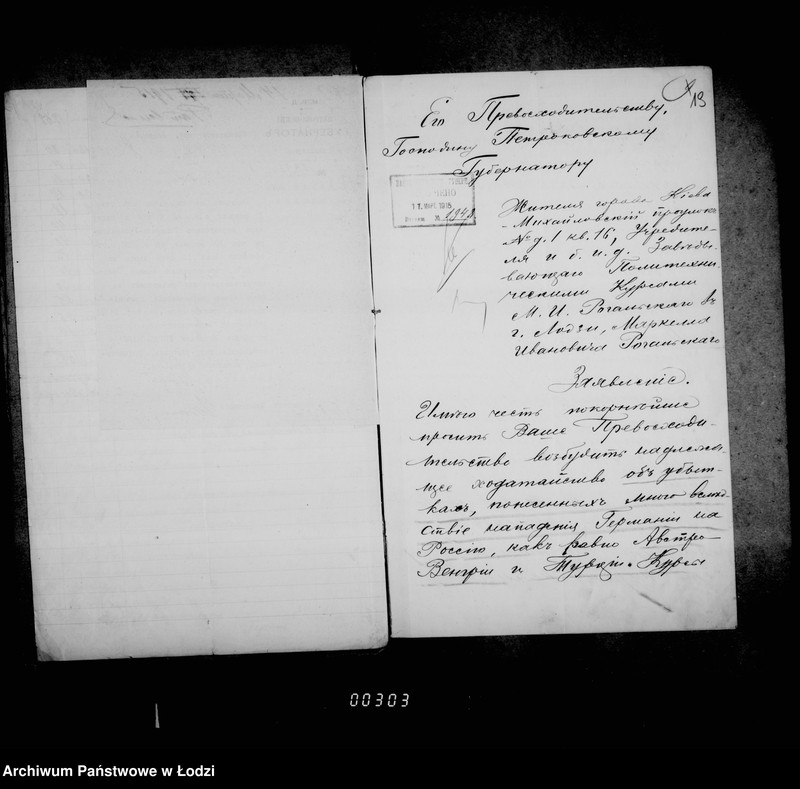 13
Его Превосходительству,
Господину Петроковскому
Губернатору
1915
4948
Жителя города Кіева
Михайловскій проулокъ
№ д. 1 кв. 16, Учредите-
ля и б. и. д. Завѣды-
вающаго Политехни-
ческими Курсами
М. И. Рогальскаго въ
г. Лодзи, Маркелла
Ивановича Рогальскаго
Заявленіе.
Имѣю честь покорнѣйше
просить Ваше Превосходи-
тельство возбудить надлежа-
щее ходатайство объ убыт-
кахъ, понесенныхъ мною вслѣд-
ствіе нападенія Германіи на
Россію, какъ равно Австро-
Венгріи и Турціи. Курсы
00303
Archiwum Państwowe w Łodzi